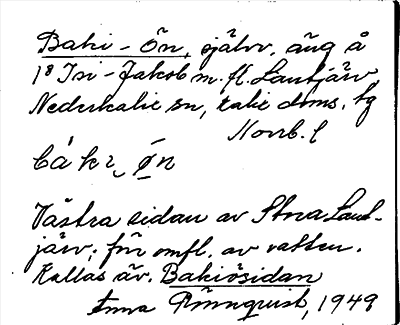 Baki-ön, självv. äng å
1⁸ Isi-Jakob m.fl. Lantjärv,
Nederkalix sn, kalix doms. hg
Norrb. l
bákı ø̄n
Västra sidan av Stora Lant-
järv; för omfl. av vatten.
Kallas äv. Bakiösidan
Anna Rönnquist, 1949